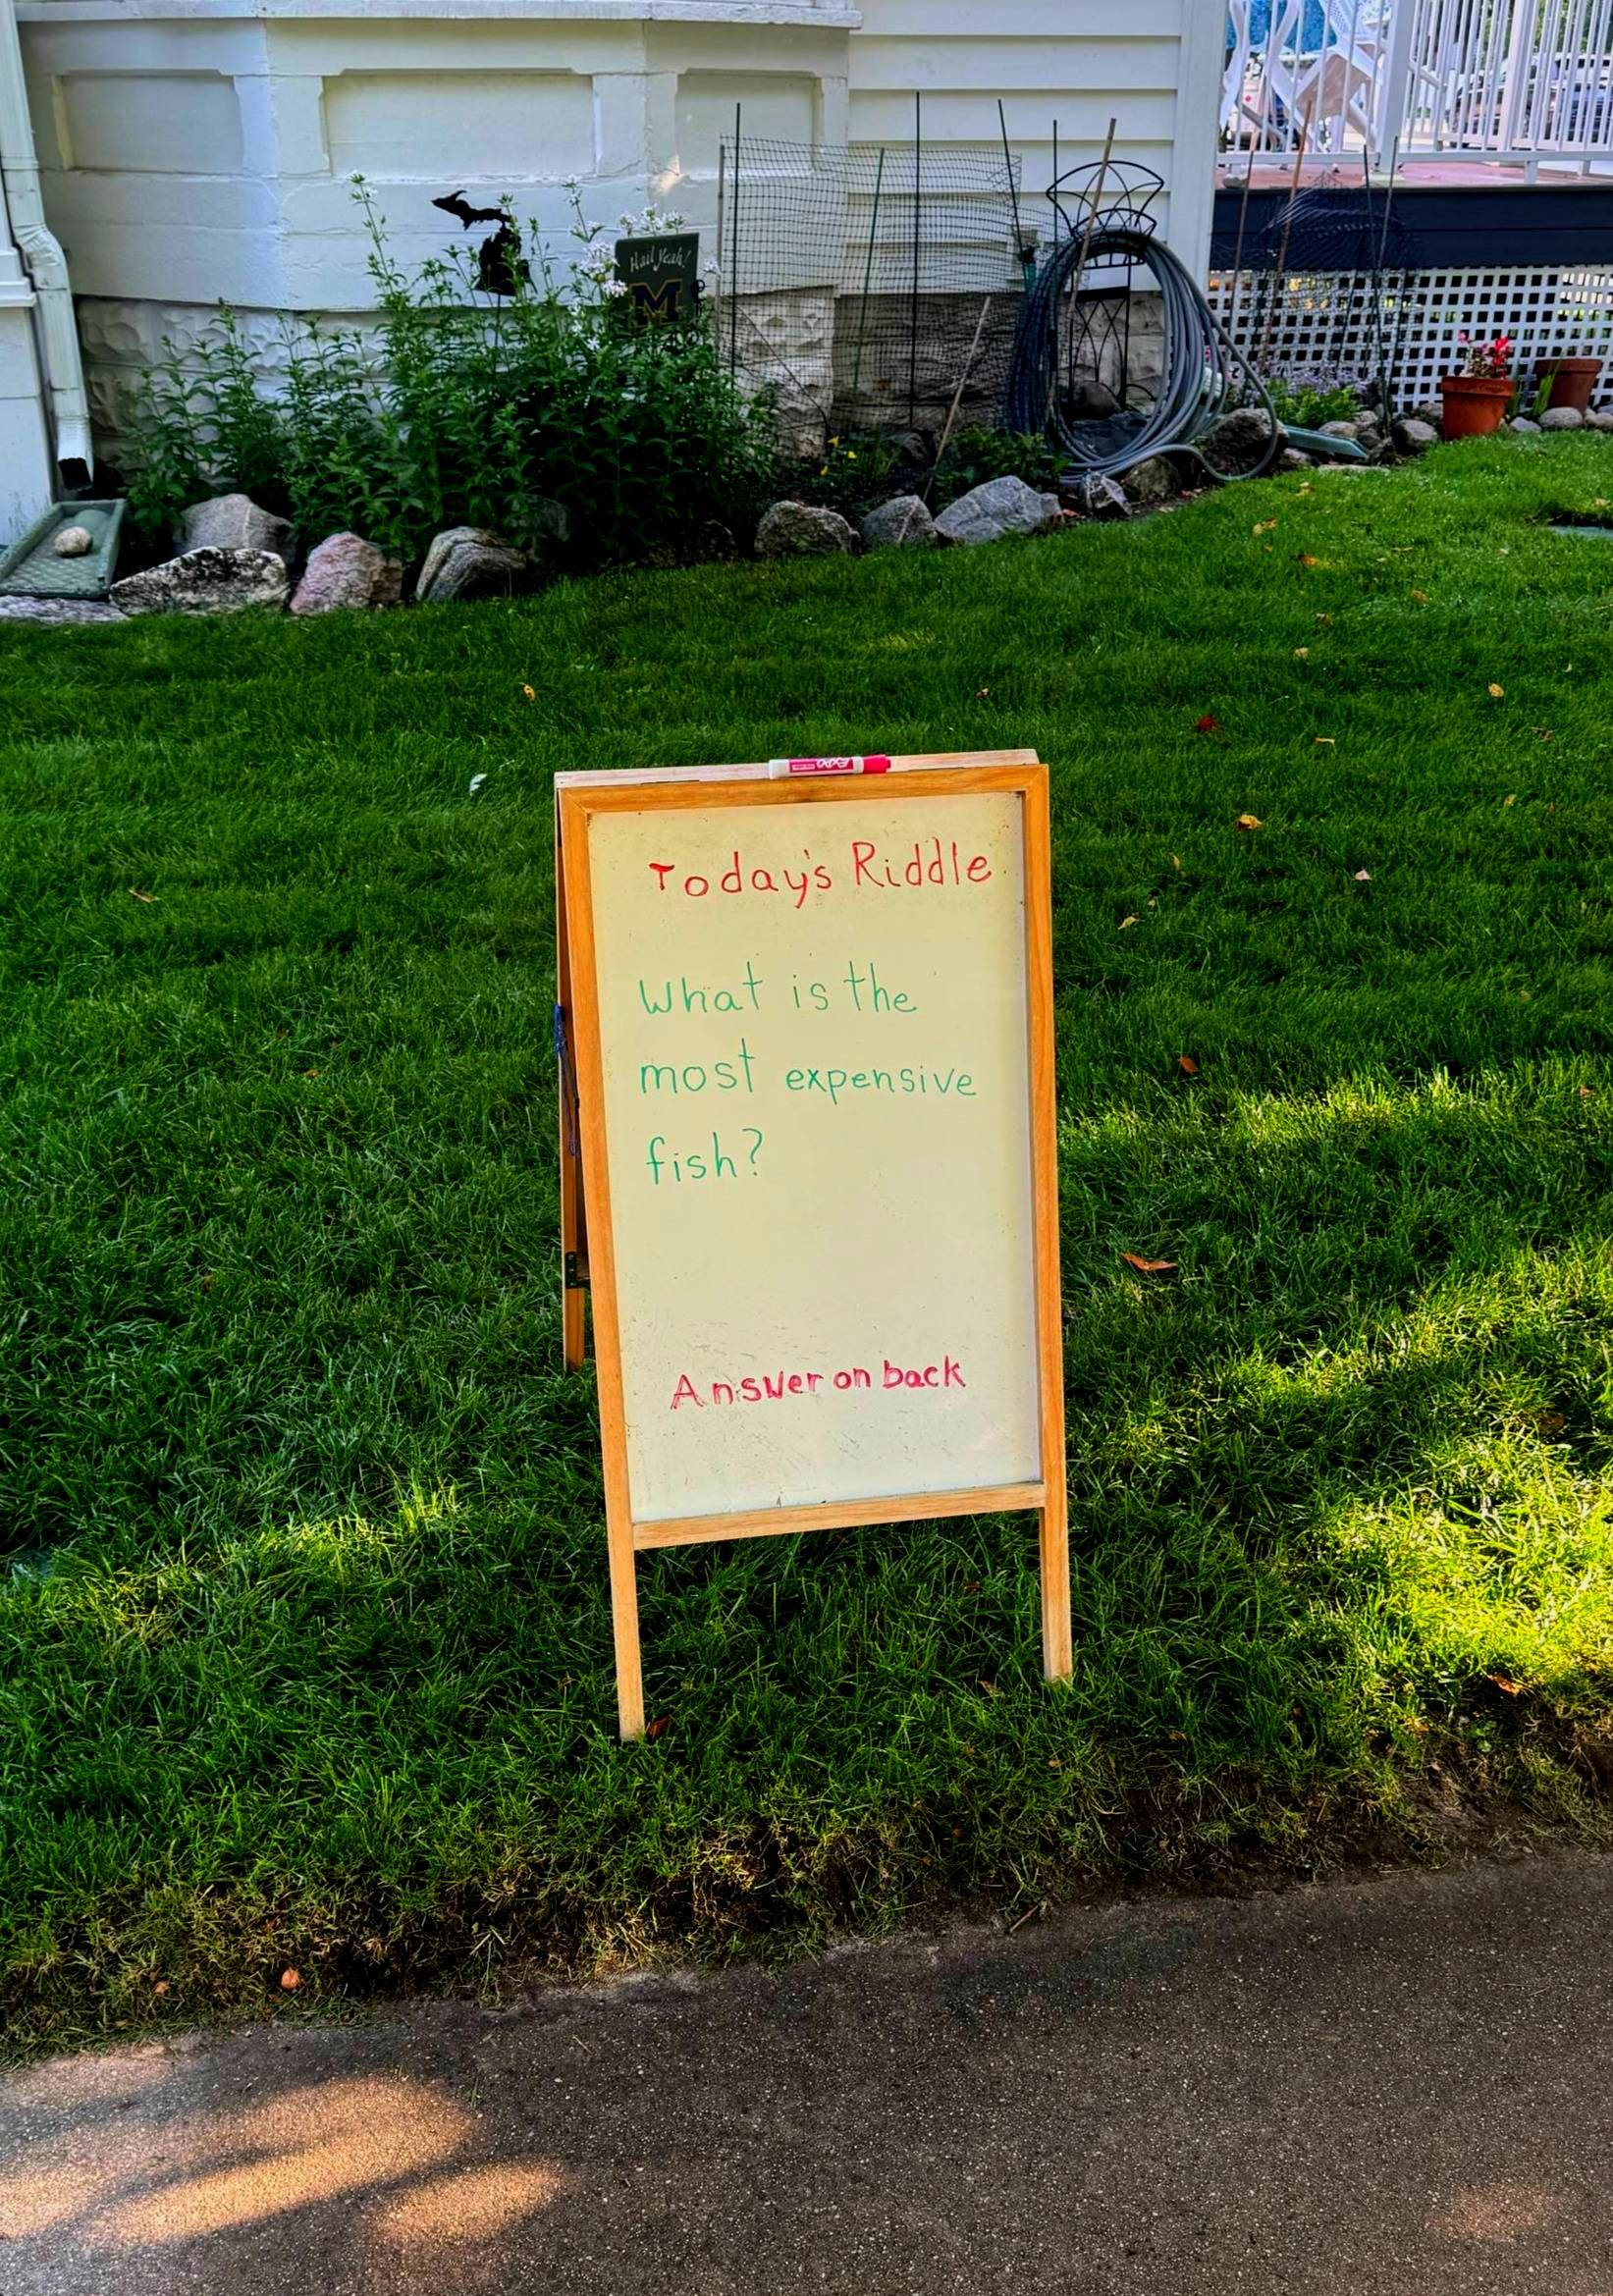 Hail Yeah!
M
EXPO
Today's Riddle
What is the
most expensive
fish?
Answer on back